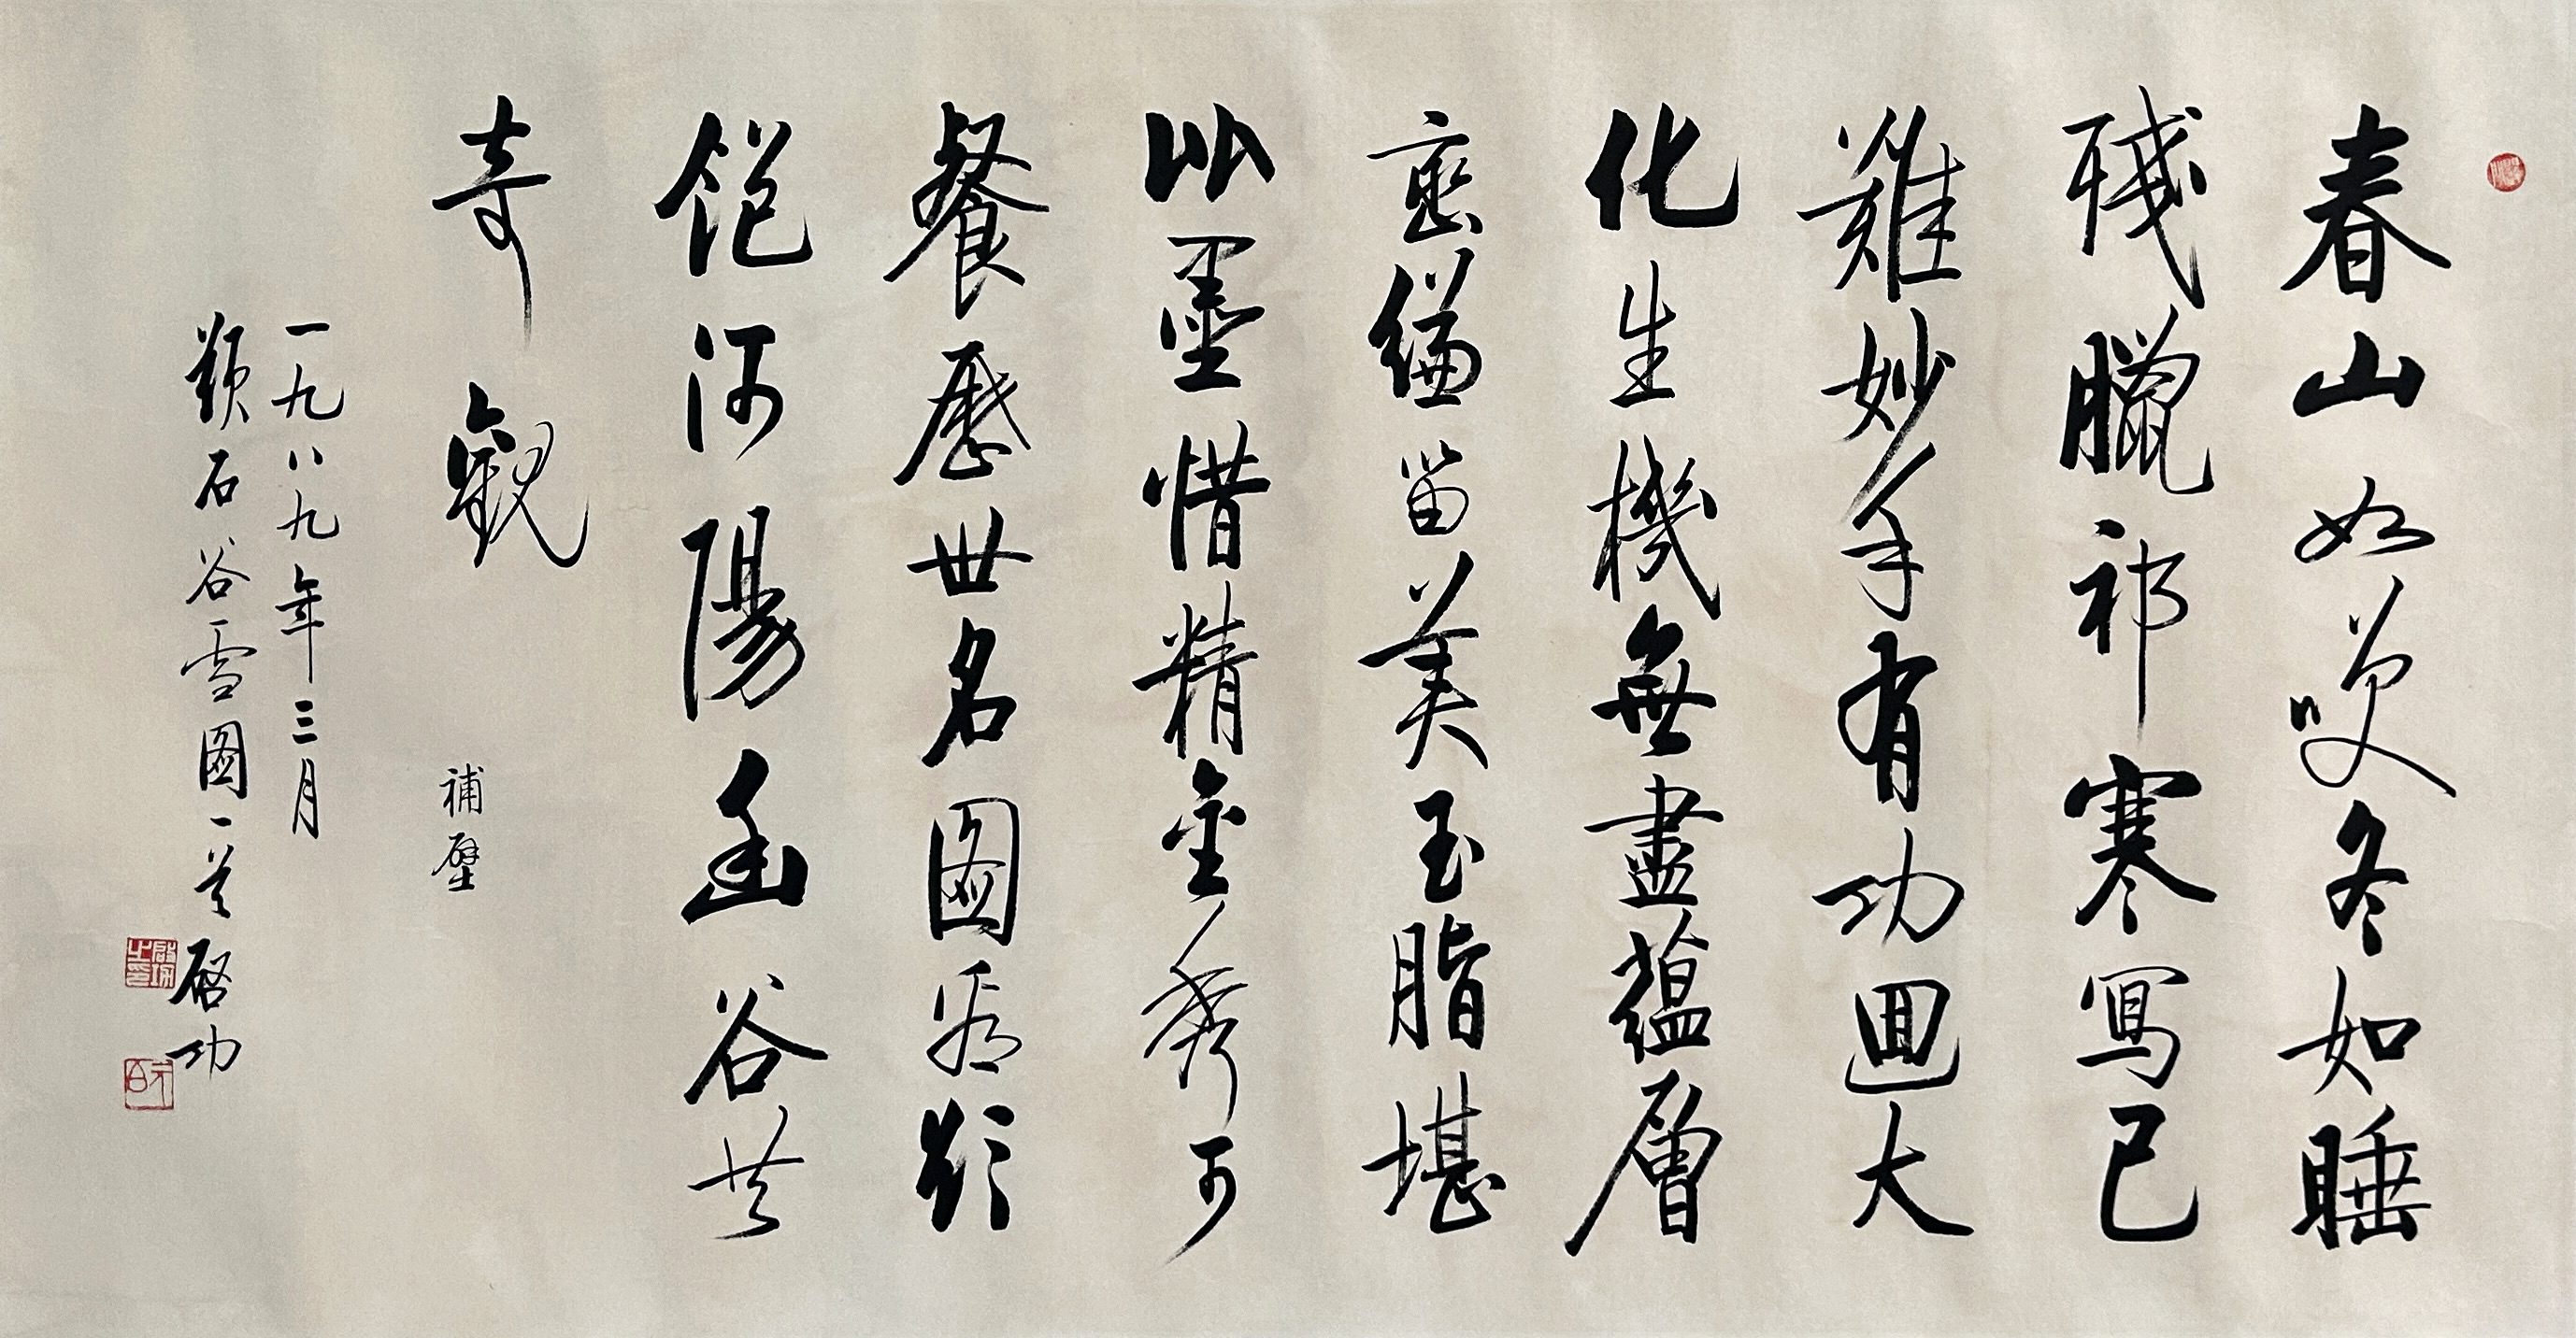 春山如笑冬如睡
殘臘祁寒寫已
難妙手有功回大
化生機無盡蘊層
巒縑留美玉脂堪
比墨惜精金秀可
餐歷世名圖爲題
絕河陽幽谷共
奇觀
補壁
一九八九年三月
題石谷雪圖一首
啓功